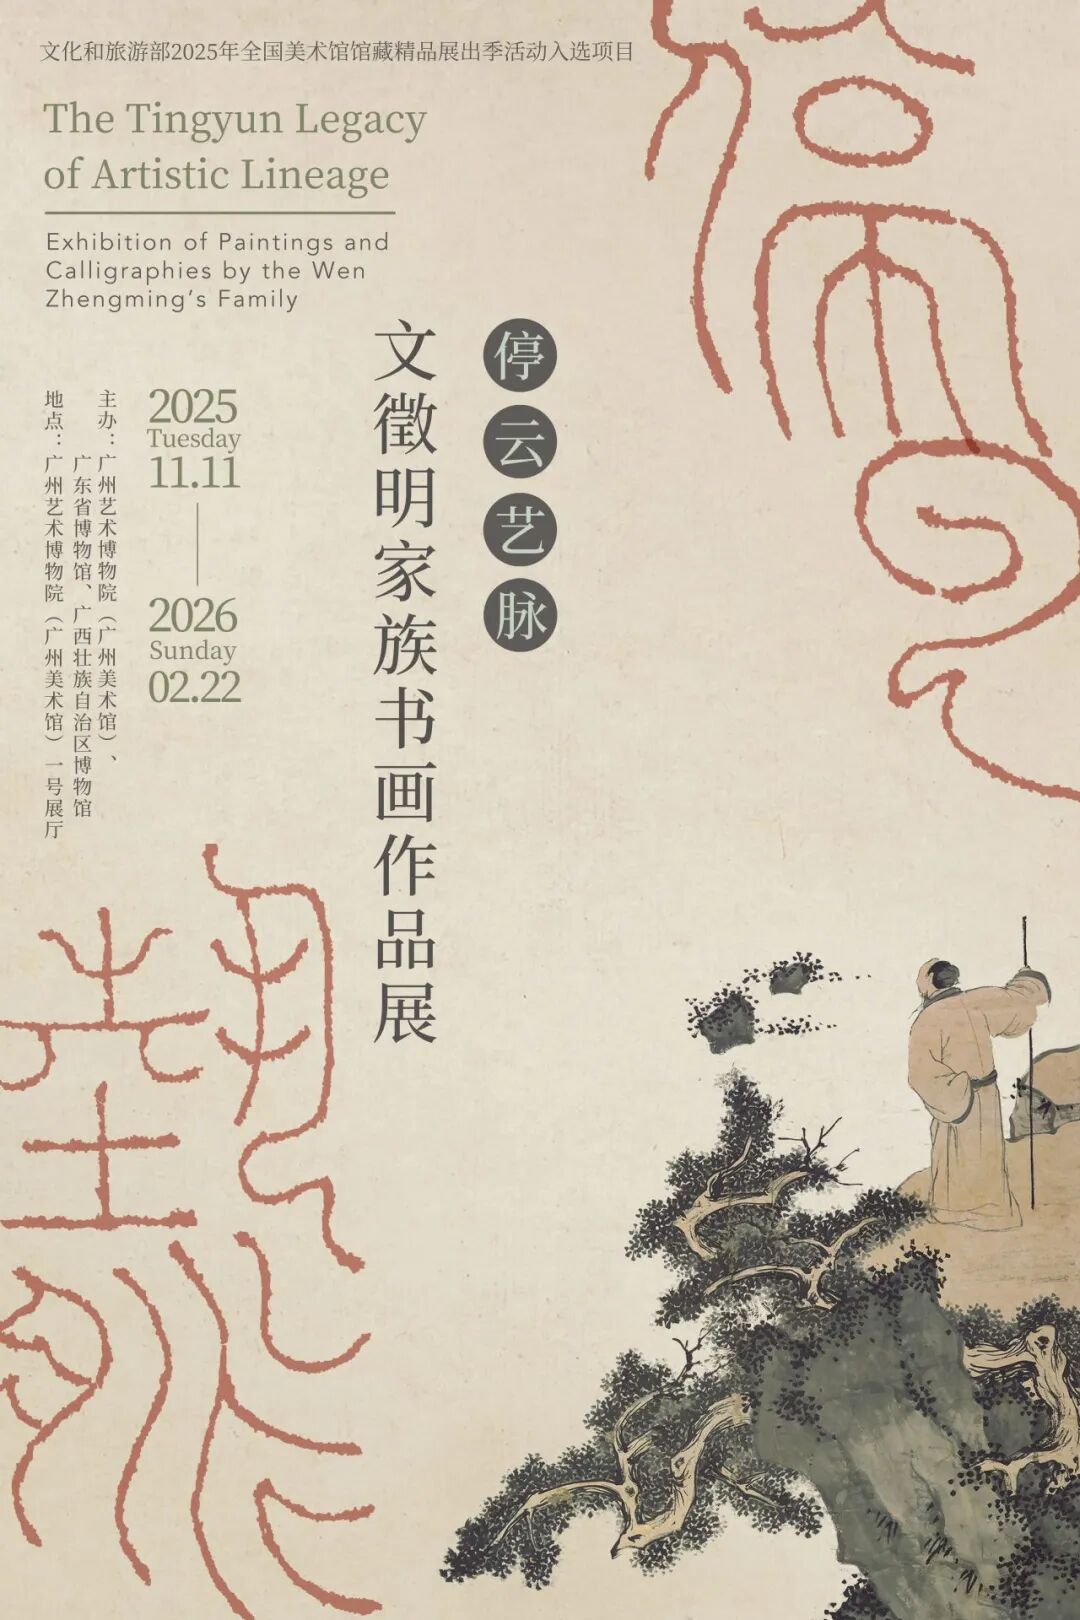 文化和旅游部2025年全国美术馆馆藏精品展出季活动入选项目
The Tingyun Legacy
of Artistic Lineage
Exhibition of Paintings and
Calligraphies by the Wen
Zhengming's Family
停云艺脉
文徵明家族书画作品展
2025
Tuesday
11.11
2026
Sunday
02.22
主办：广州艺术博物院（广州美术馆）、
广东省博物馆、广西壮族自治区博物馆
地点：广州艺术博物院（广州美术馆）一号展厅